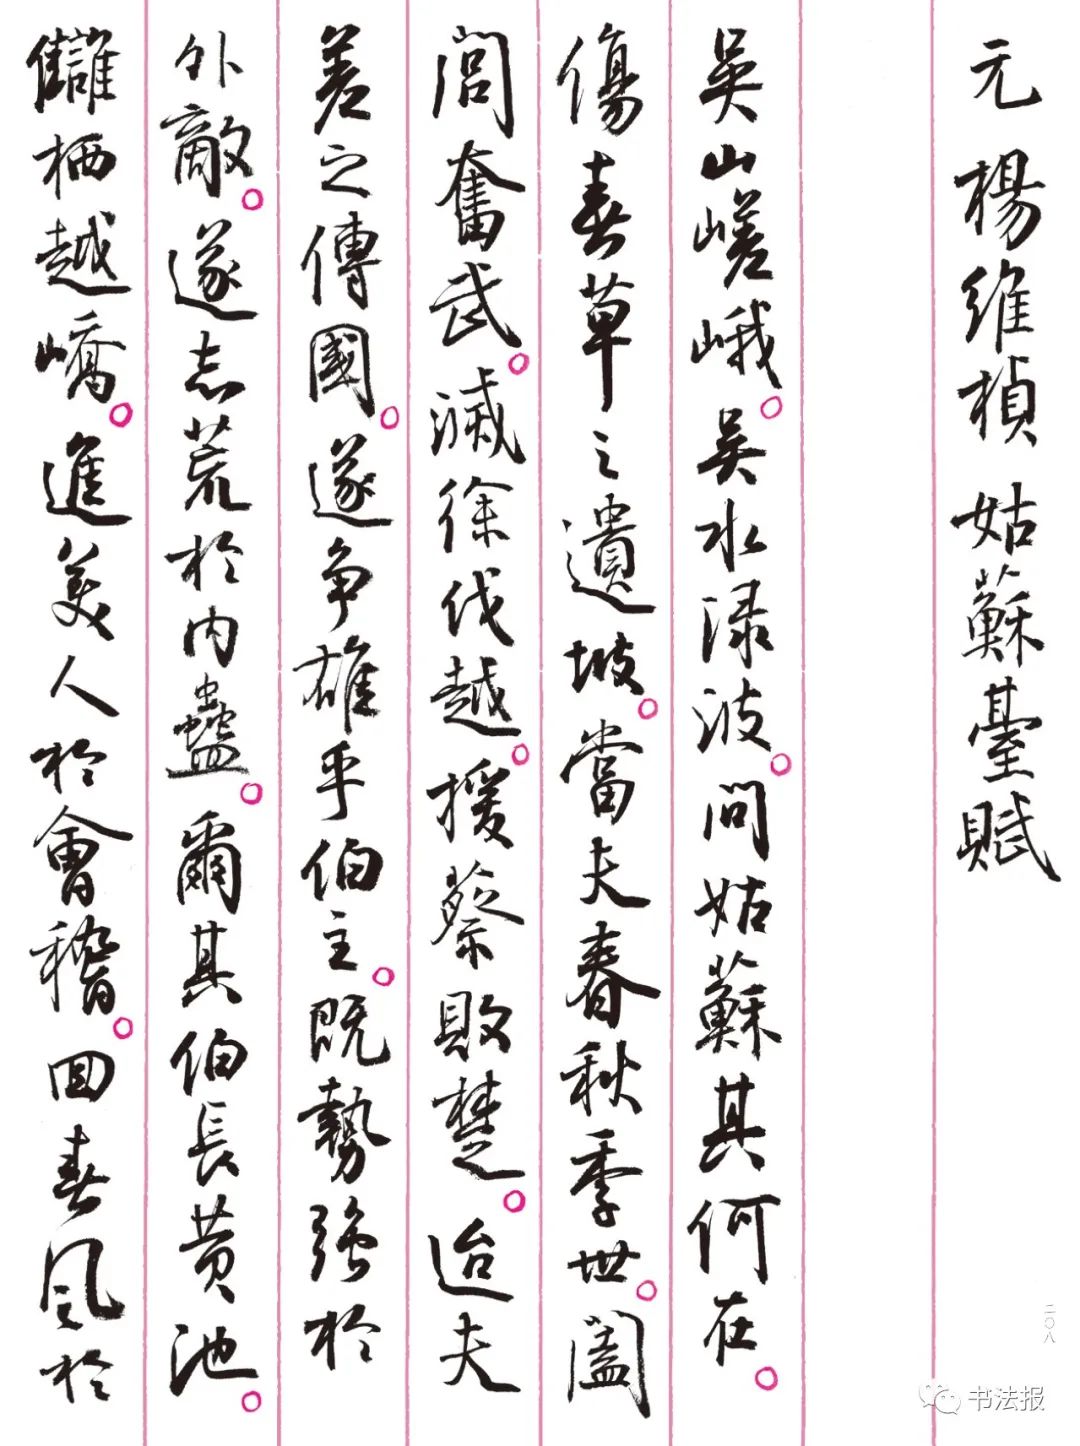 元 楊維楨 姑蘇臺賦
吳山嵯峨。吳水渌波。問姑蘇其何在。
傷春草之遺坡。當夫春秋季世。闔
閭奮武。滅徐伐越。援蔡敗楚。迨夫
差之傳國。遂争雄乎伯主。既勢強於
外敵。遂志荒於内蠱。爾其伯長黄池。
讎栖越嶠。進美人於會稽。回春風於
二〇八
书法报